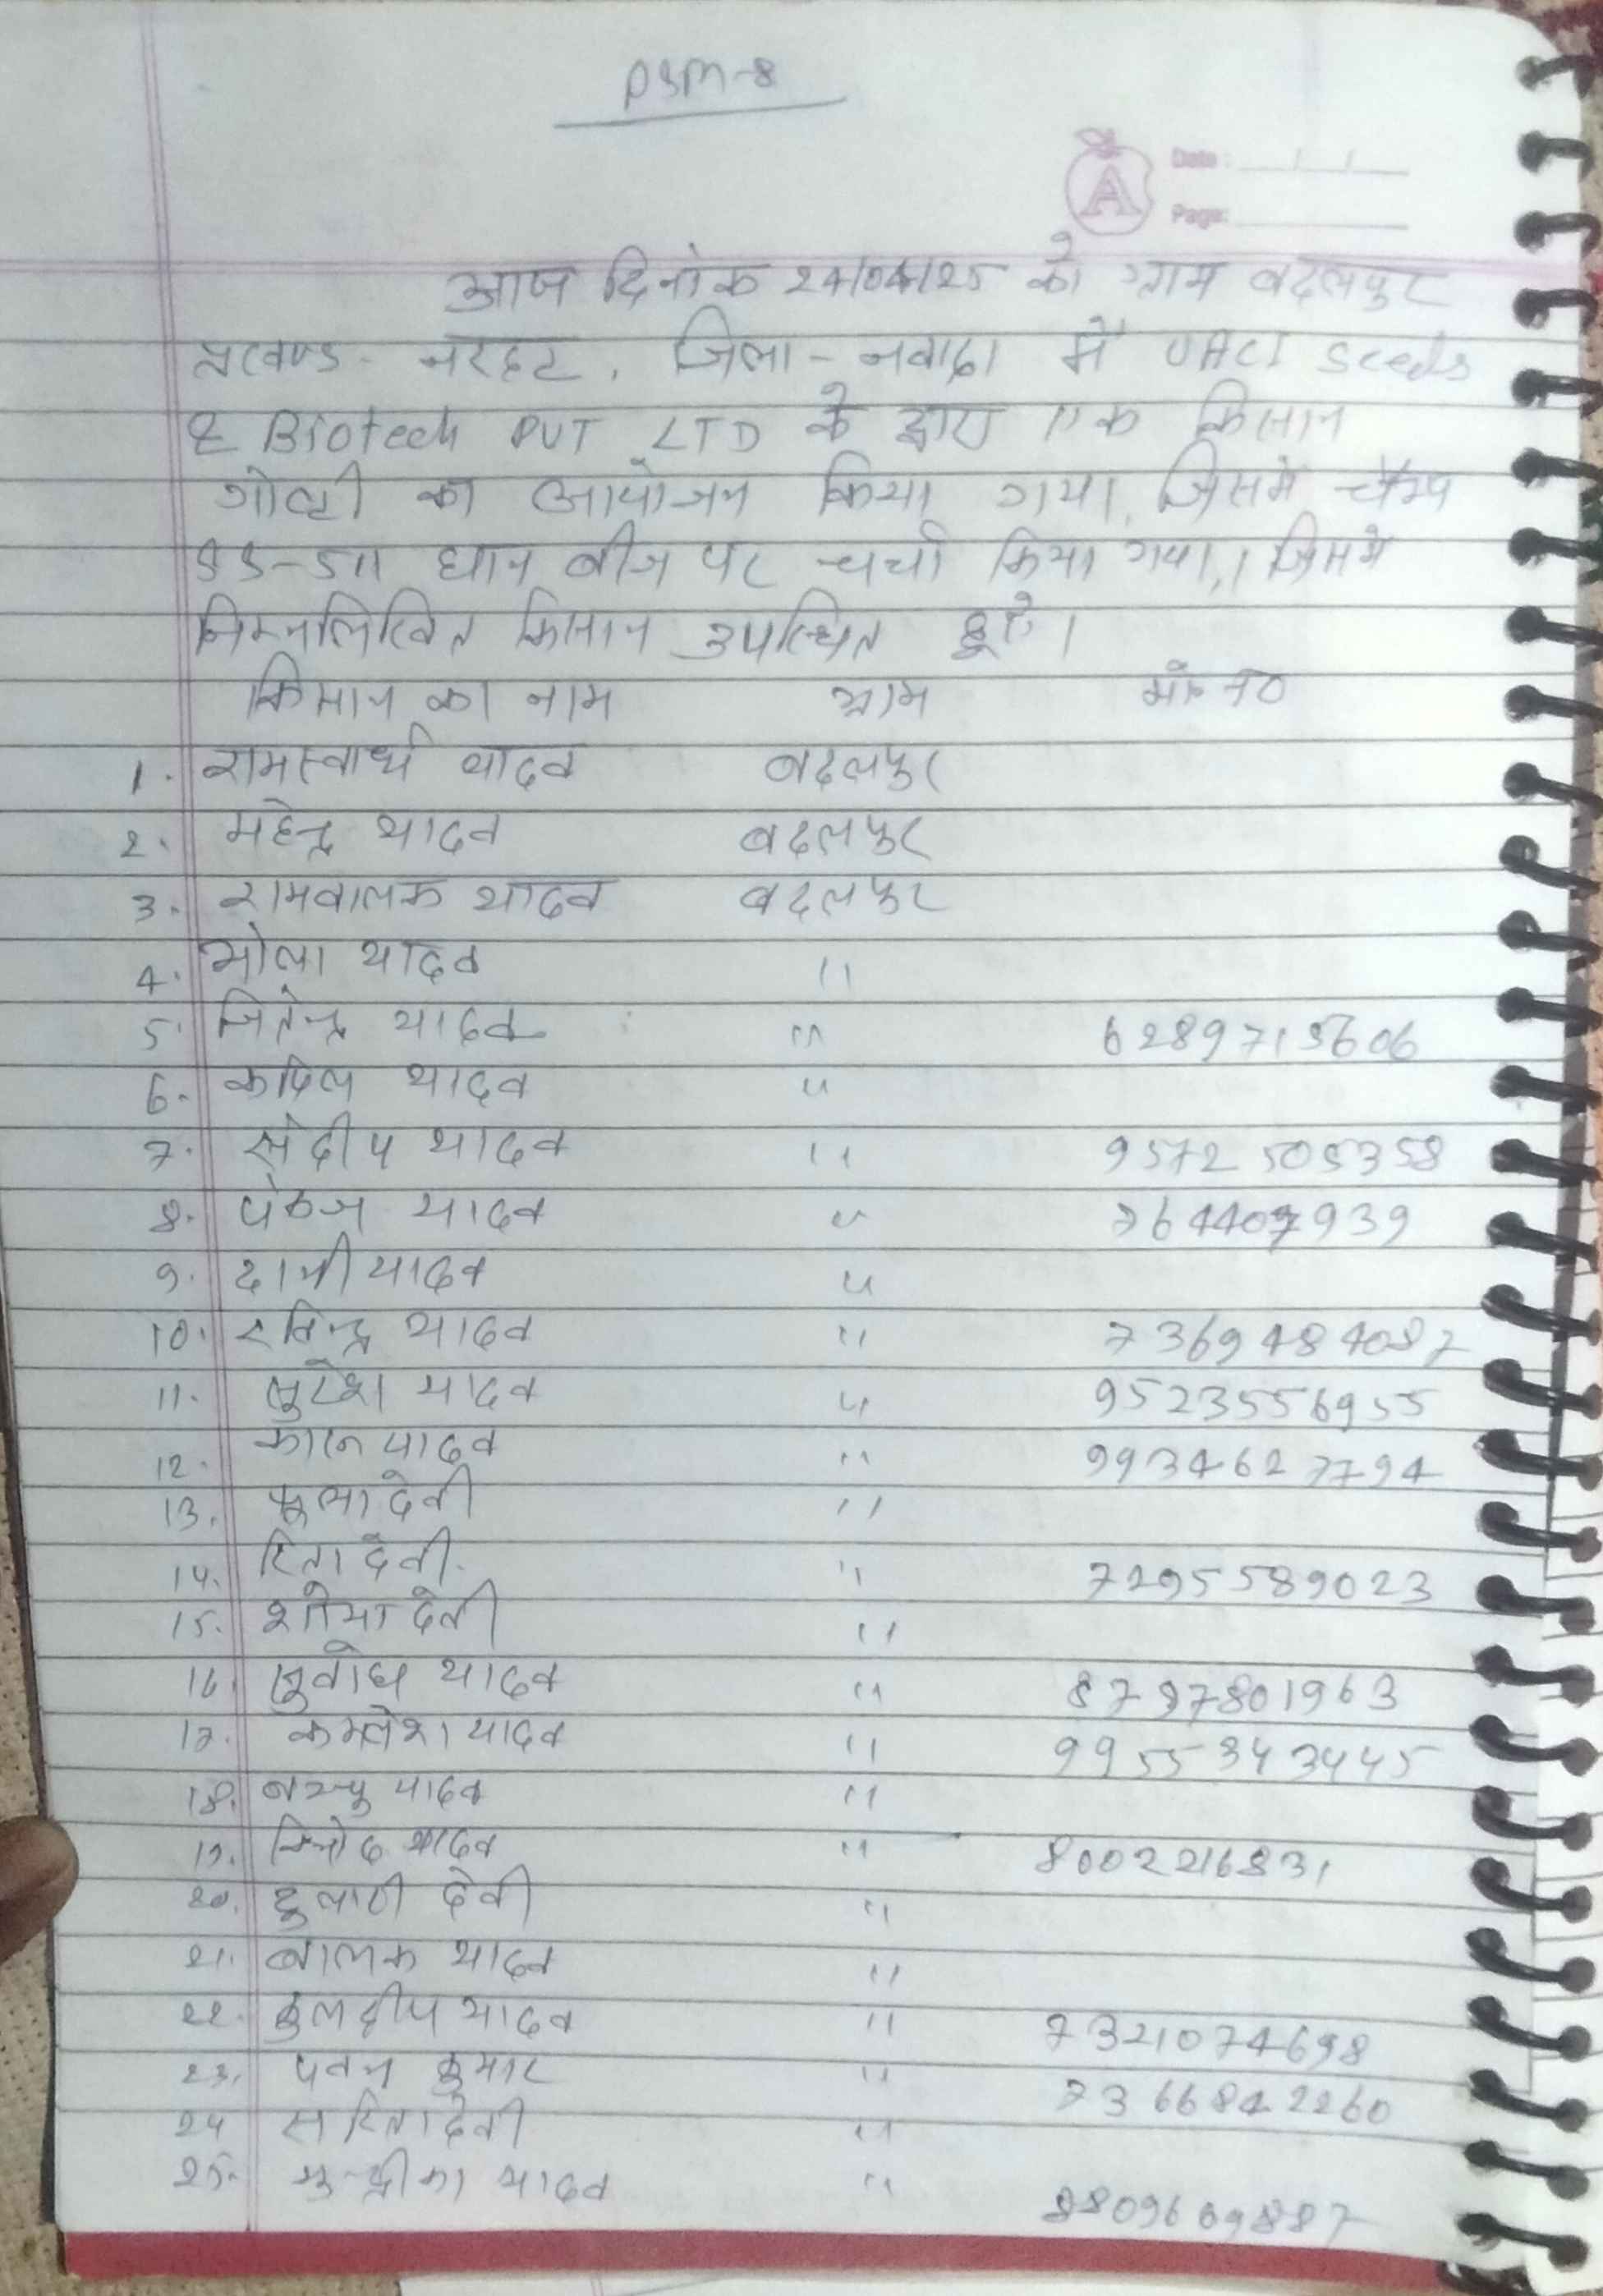 PSM-8
A
Date : / /
Page:
आज दिनांक 24/04/25 को ग्राम बदलपुर
प्रखण्ड - नरहट, जिला - नवादा में UACI Seeds
& Biotech PVT LTD के द्वारा एक किसान
गोष्ठी का आयोजन किया गया, जिसमे चैम्प
SS-511 धान बीज पर चर्चा किया गया,। जिसमे
निम्नलिखित किसान उपस्थित हूऐ।
किसान का नाम ग्राम मो० न०
1. रामस्वार्थ यादव बदलपुर
2. महेन्द्र यादव बदलपुर
3. रामबालक यादव बदलपुर
4. भोला यादव "
5. जितेन्द्र यादव " 6289715606
6. कपिल यादव "
7. संदीप यादव " 9572505358
8. पंकज यादव " 764407939
9. दानी यादव "
10. रविन्द्र यादव " 7369484087
11. सुरेश यादव " 9523556955
12. यादव " 9934627794
13. फूला देवी "
14. रिता देवी. " 7295589023
15. देवी "
16. सुबोध यादव " 8797801963
17. कमलेश यादव " 9955343445
18. यादव "
19. विनोद यादव " 8002216831
20. दुलारी देवी "
21. बालक यादव "
22. कुलदीप यादव " 7321074698
23. पवन कुमार " 7366842260
24 सरिता देवी "
25. मुन्द्रीका यादव " 8809669887